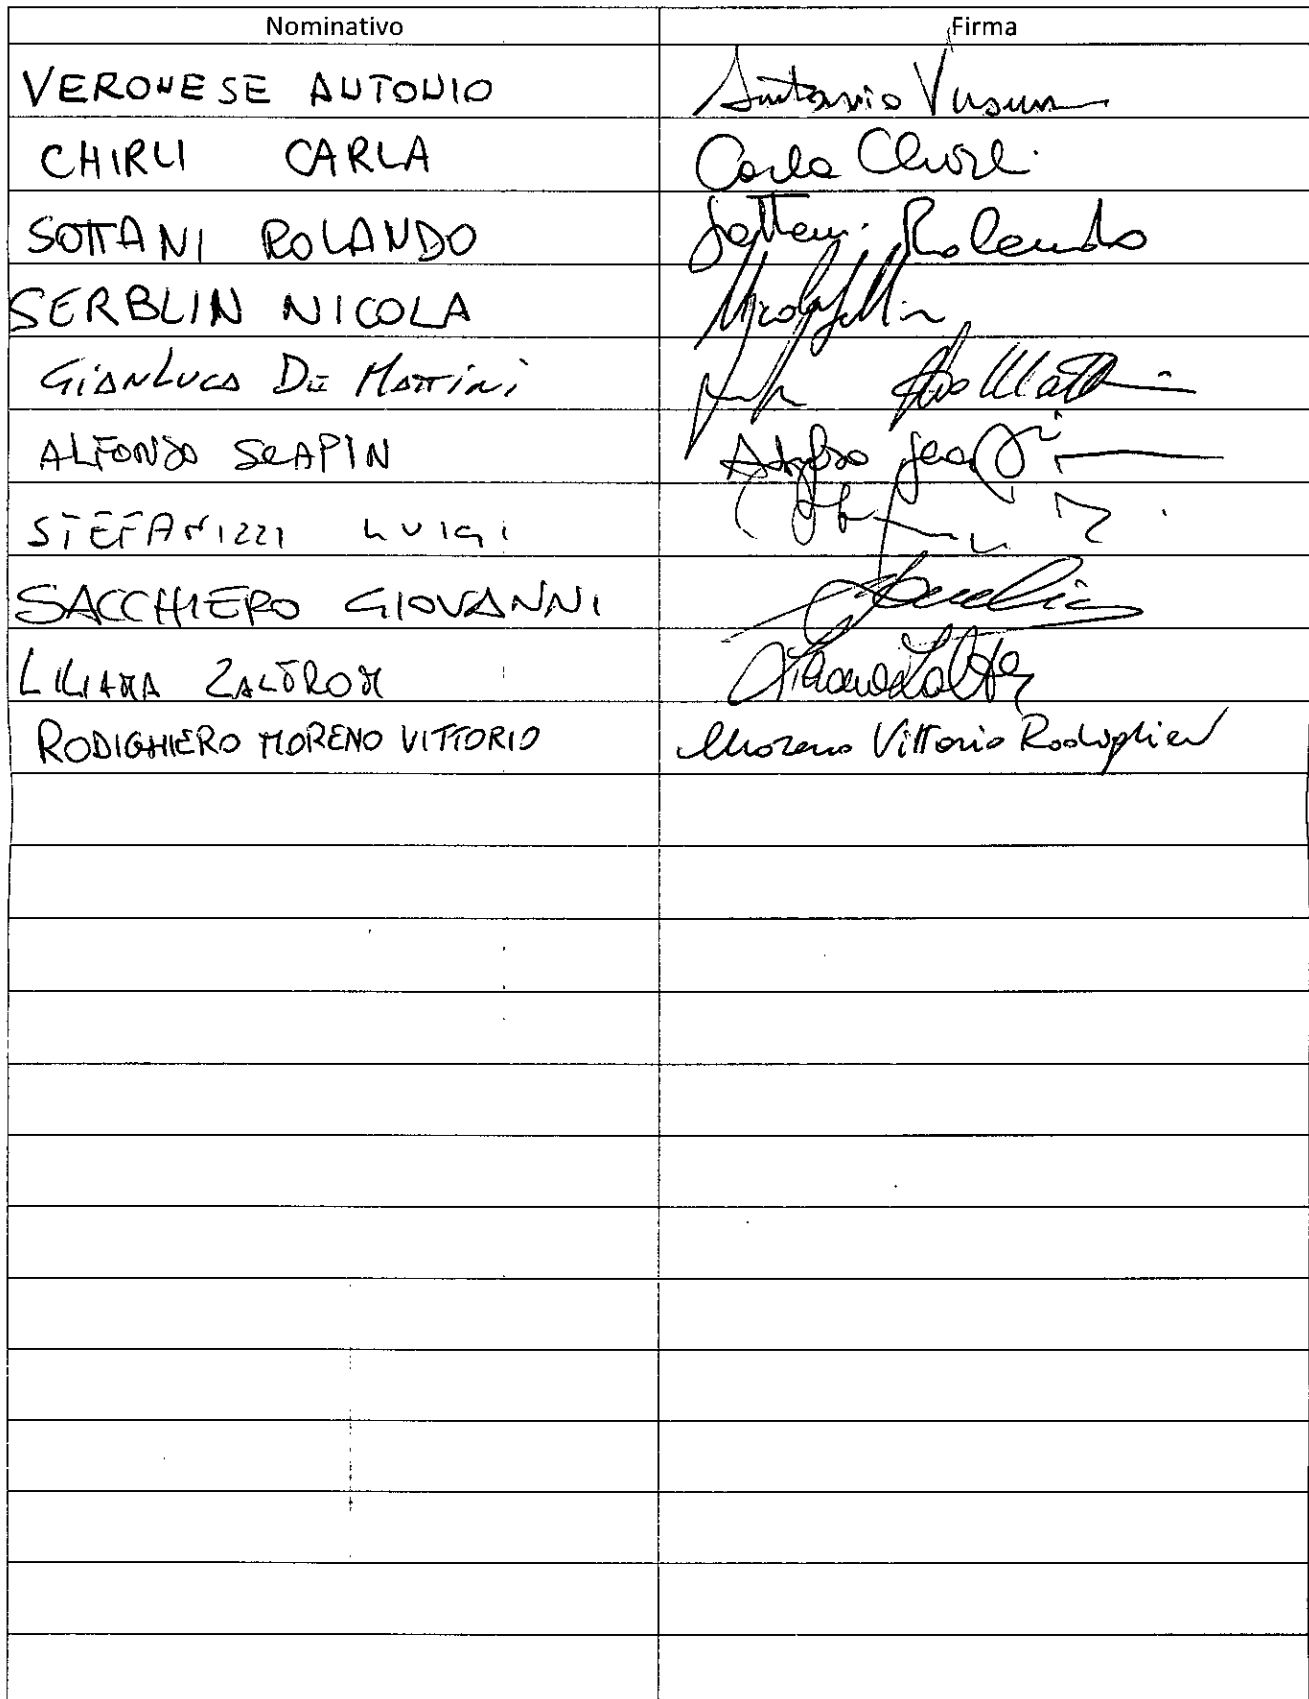 Nominativo Firma
VERONESE ANTONIO Antonio
CHIRLI CARLA Carla Chirli
SOTTANI ROLANDO Sottani Rolando
SERBLIN NICOLA Nicola
GIANLUCA DE MATTINI
ALFONSO SCAPIN Alfonso
STEFANIZZI LUIGI
SACCHIERO GIOVANNI
LILIANA ZALTRON Liliana
RODIGHIERO MORENO VITTORIO Moreno Vittorio Rodighiero